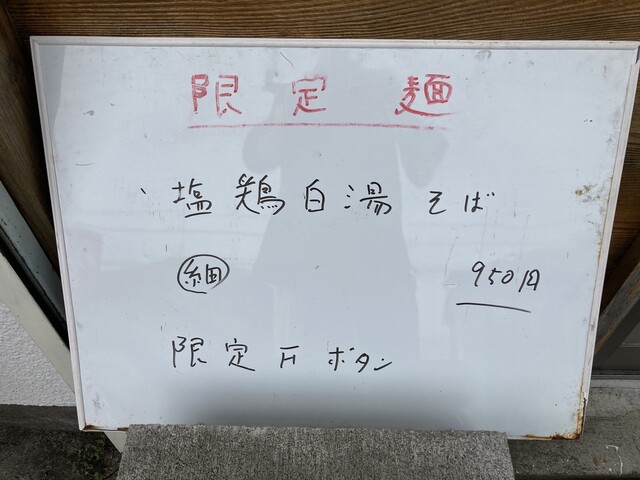 限定麺
塩鶏白湯そば
細
950円
限定Hボタン